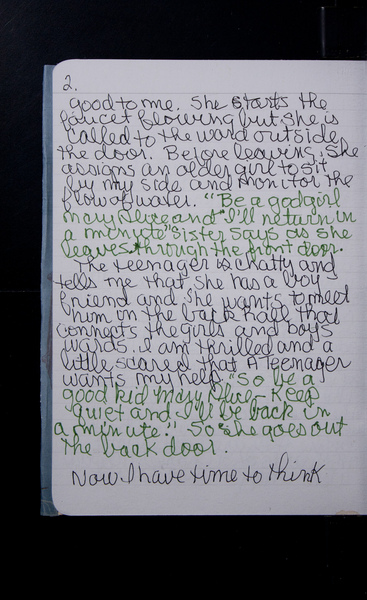 2.
good to me. She starts the
faucet flowing but she is
called to the ward outside
the door. Before leaving, she
assigns an older girl to sit
by my side and monitor the
flow of water. "Be a good girl
Mary Alyce and I'll return in
a minute" Sister says as she
leaves through the front door.
The teenager is chatty and
tells me that she has a boy
friend and she wants to meet
him in the back hall that
connects the girls and boys
wards. I am thrilled and a
little scared that a teenager
wants my help. "So be a
good kid Mary Alyce - Keep
quiet and I'll be back in
a minute." So she goes out
the back door.
Now I have time to think